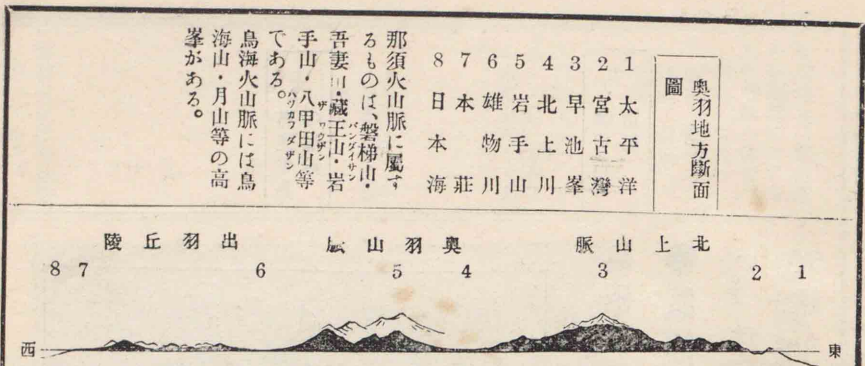 奥羽地方斷面
圖
1 太平洋
2 宮古灣
3 早池峯
4 北上川
5 岩手山
6 雄物川
7 本莊
8 日本海
那須火山脈に屬す
るものは、磐梯山・
吾妻山・藏王山・岩
手山・八甲田山等
である。
バンダイサン
ザワウザン
ハツカフダザン
鳥海火山脈には鳥
海山・月山等の高
峯がある。
出羽丘陵 奧羽山脈 北上山脈
8 7 6 5 4 3 2 1
西 東